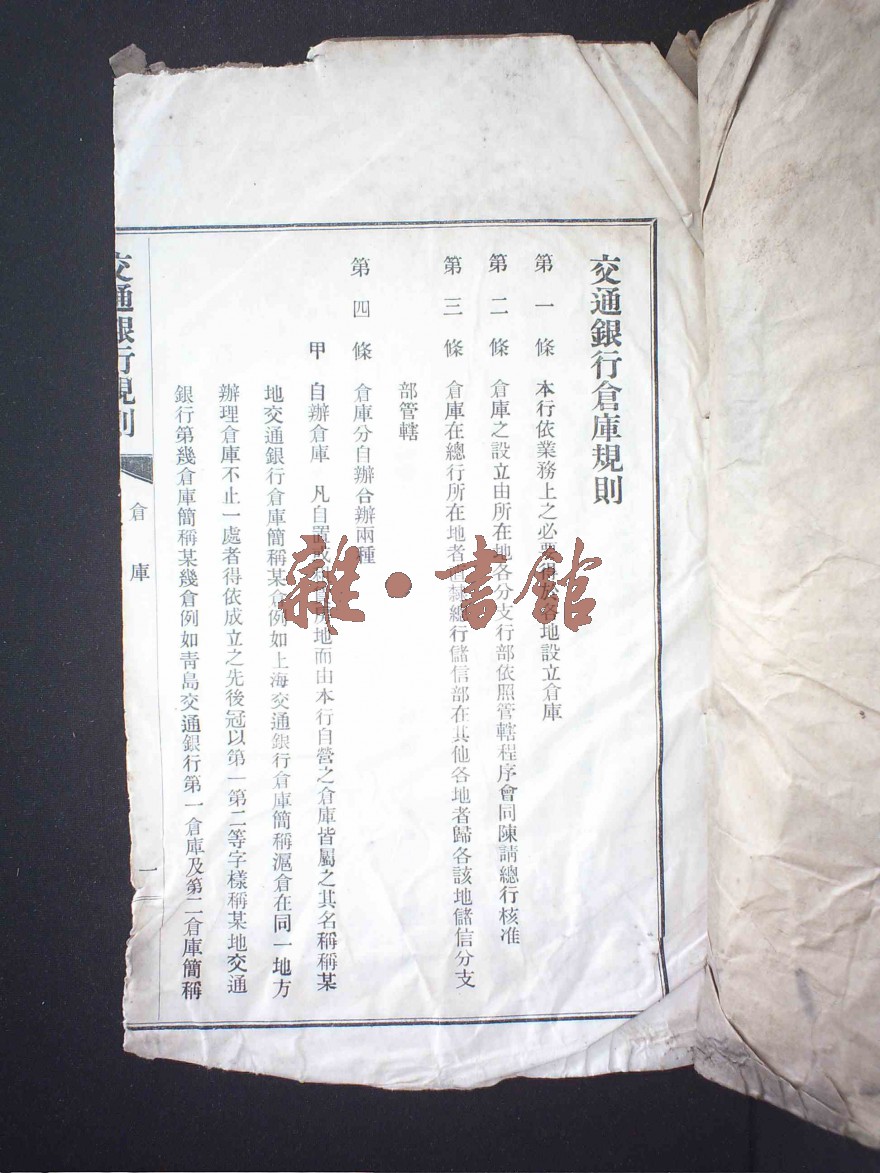 交通銀行倉庫規則
第一條 本行依業務上之必要得於各地設立倉庫
第二條 倉庫之設立由所在地各分支行部依照管轄程序會同陳請總行核准
第三條 倉庫在總行所在地者直隸總行儲信部在其他各地者歸各該地儲信分支
部管轄
第四條 倉庫分自辦合辦兩種
甲 自辦倉庫 凡自置或 房地而由本行自營之倉庫皆屬之其名稱稱某
地交通銀行倉庫簡稱某倉例如上海交通銀行倉庫簡稱滬倉在同一地方
辦理倉庫不止一處者得依成立之先後冠以第一第二等字樣稱某地交通
銀行第幾倉庫簡稱某幾倉例如青島交通銀行第一倉庫及第二倉庫簡稱
交通銀行規則
倉庫
一
雜·書館